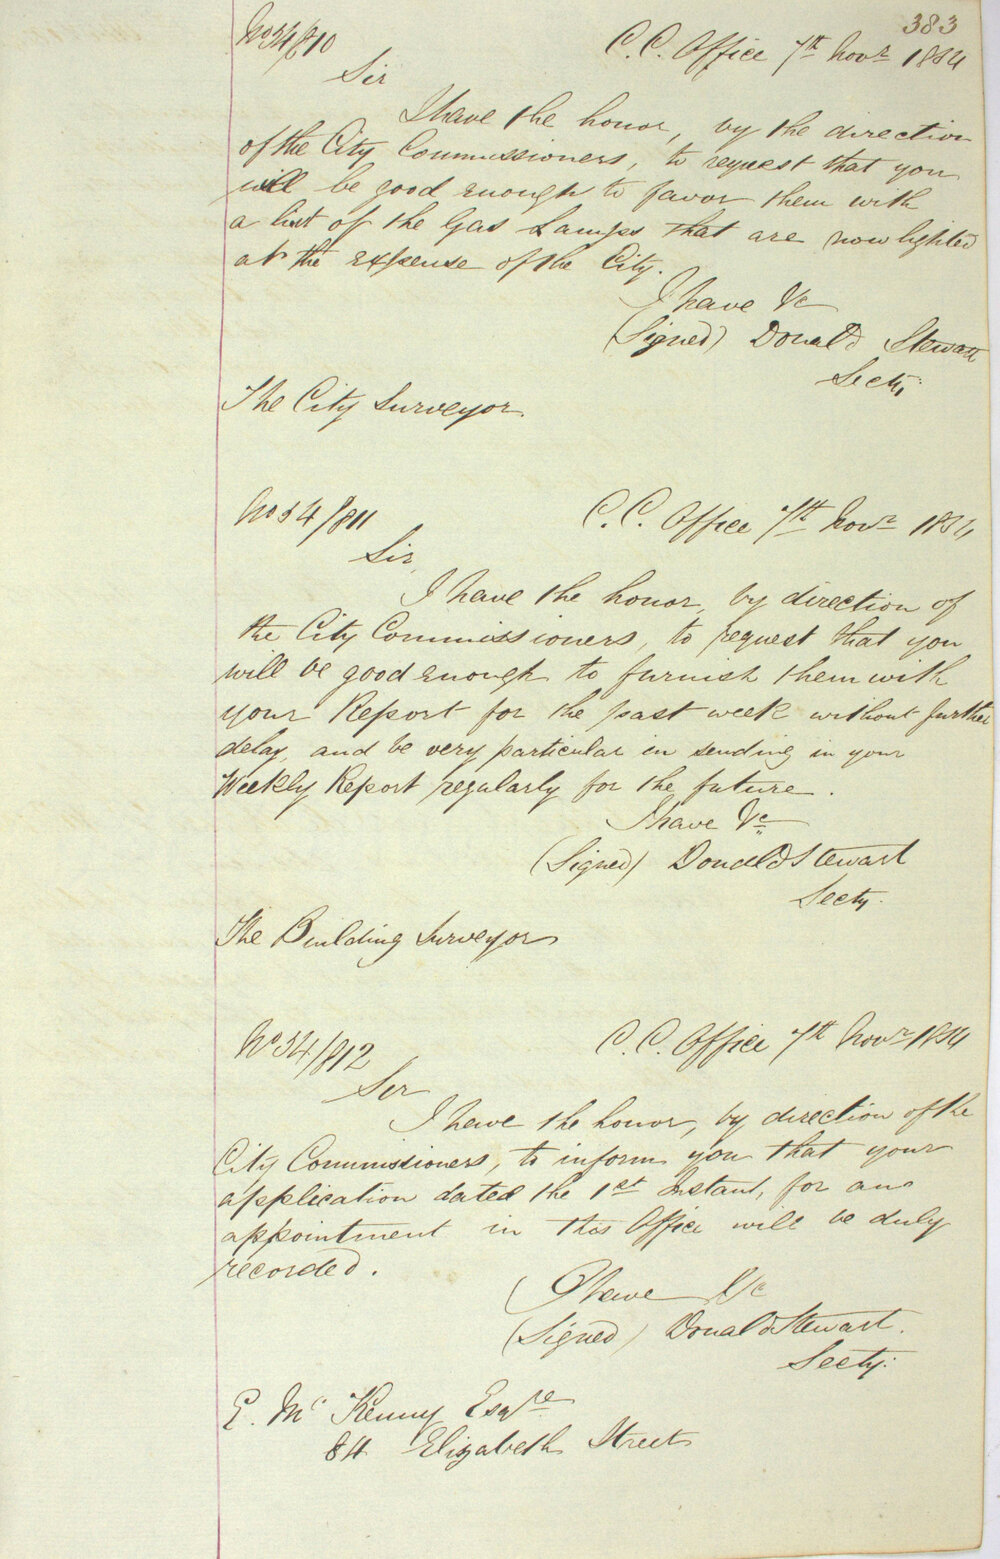 383
No 54/810 C. C. Office 7th Novr 1854
Sir
I have the honor, by the direction
of the City Commissioners, to request that you
will be good enough to favor them with
a list of the Gas Lamps that are now lighted
at the expense of the City.
I have &c
(Signed) Donald Stewart
Secty.
The City Surveyor.
No 54/811 C. C. Office 7th Novr 1854
Sir,
I have the honor, by direction of
the City Commissioners, to request that you
will be good enough to furnish them with
your Report for the past week without further
delay, and be very particular in sending in your
Weekly Report regularly for the future.
I have &c
(Signed) Donald Stewart
Secty.
The Building Surveyor
No 54/812 C. C. Office 7th Novr 1854
Sir
I have the honor, by direction of the
City Commissioners, to inform you that your
application dated the 1st Instant, for an
appointment in this Office will be duly
recorded.
I have &c
(Signed) Donald Stewart.
Secty.
E. Mc Kenny Esqre
84 Elizabeth Street